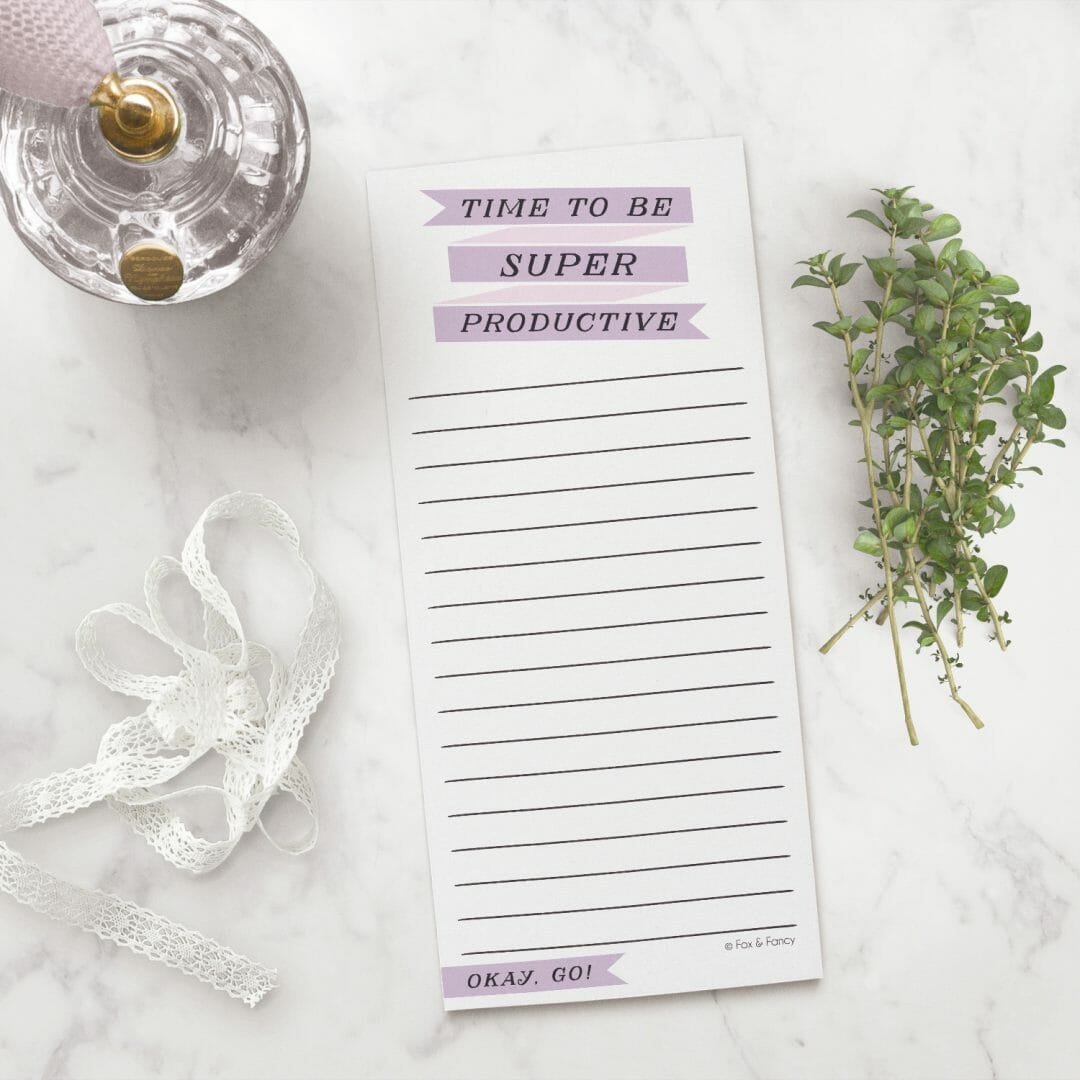 TIME TO BE
SUPER
PRODUCTIVE
© Fox & Fancy
OKAY, GO!